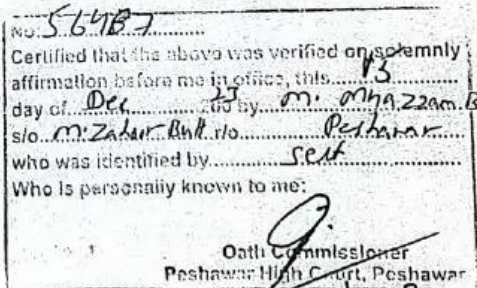 No: 56487
Certified that the above was verified on solemnly
affirmation before me in office, this 13
day of Dec 2023 by M. Muazzam B
s/o M. Zahair Butt r/o Peshawar
who was identified by Self
Who is personally known to me:
Oath Commissioner
Peshawar High Court, Peshawar